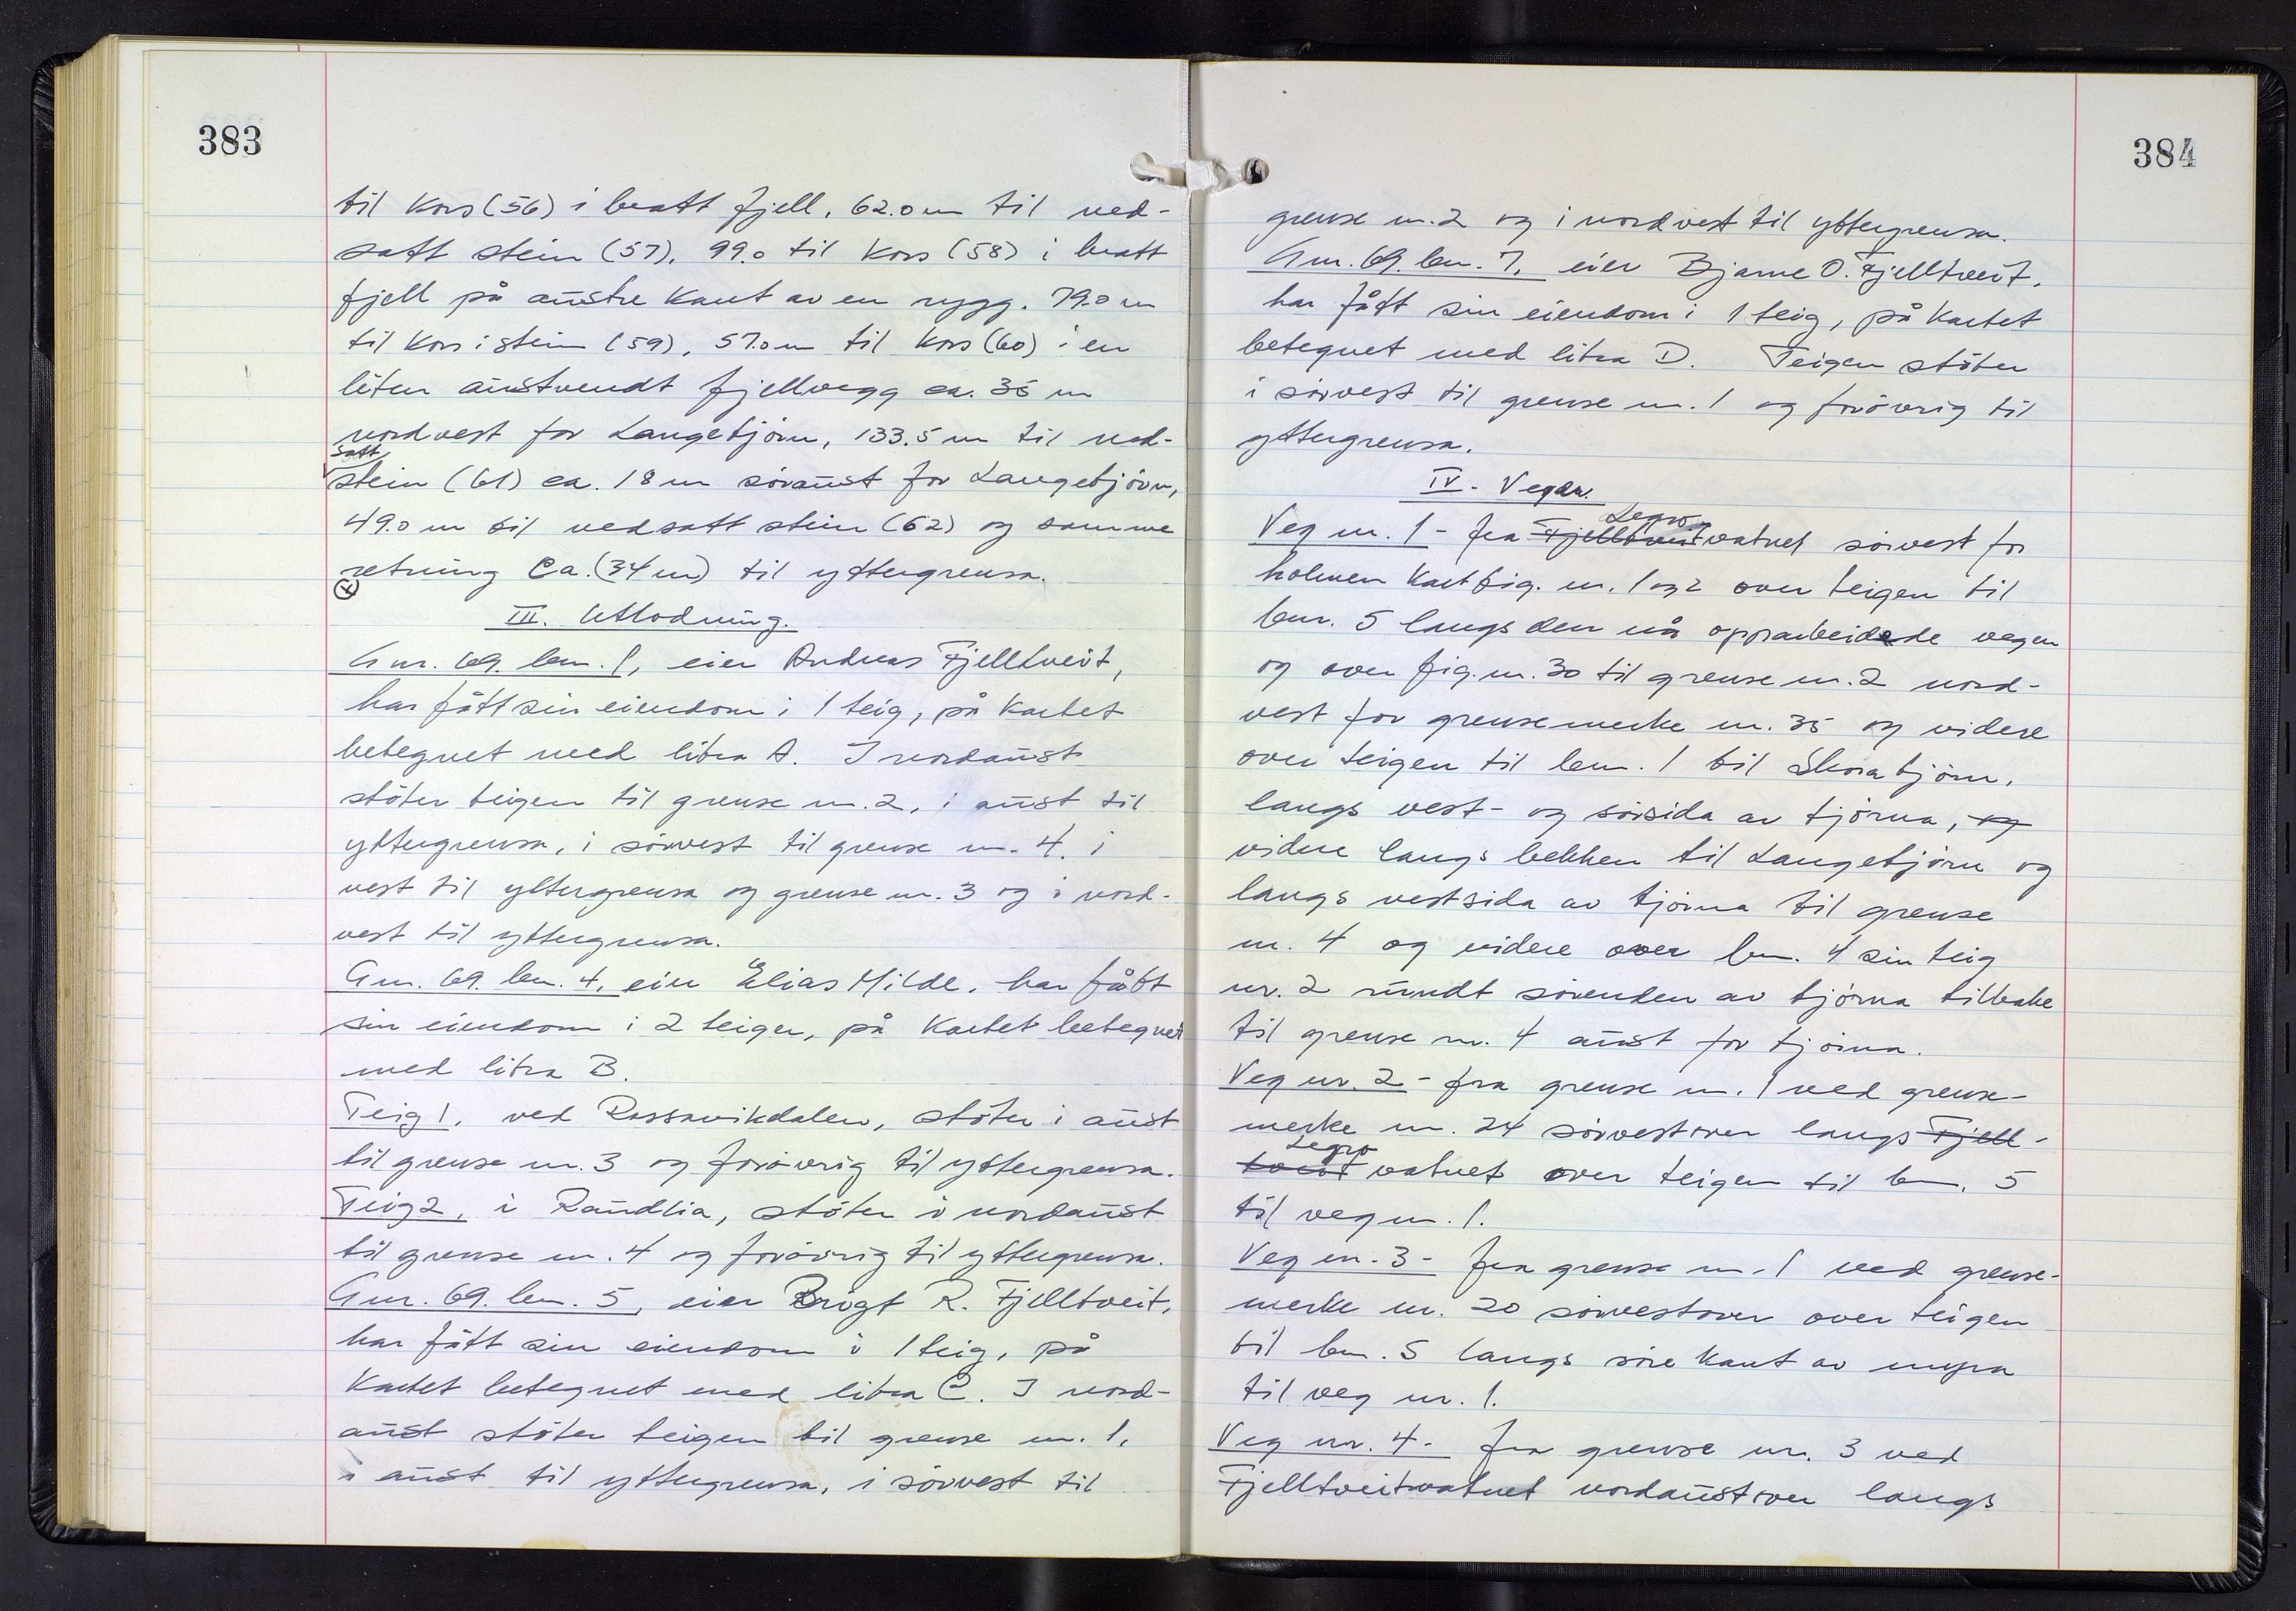 383
til kors (56) i bratt fjell, 62.0 m til ned-
satt stein (57), 99.0 til kors (58) i bratt
fjell på austre kant av en rygg. 79.0 m
til kors i stein (59), 57.0 m til kors (60) i en
liten austvendt fjellvegg ca. 35 m
nordvest for Langetjörn, 133.5 m til ned-
satt
stein (61) ca. 18 m söraust for Langetjörn,
49.0 m til nedsatt stein (62) og samme
retning ca. (34 m) til yttergrensa.
III. Utlodning.
Gnr. 69. bnr. 1, eier Andreas Fjelltveit,
har fått sin eiendom i 1 teig, på kartet
betegnet med litra A. I nordaust
stöter teigen til grense nr. 2, i aust til
yttergrensa, i sörvest til grense nr. 4, i
vest til yttergrensa og grense nr. 3 og i nord-
vest til yttergrensa.
Gnr. 69. bnr. 4, eier Elias Milde, har fått
sin eiendom i 2 teiger, på kartet betegnet
med litra B.
Teig 1, ved Rossavikdalen, stöter i aust
til grense nr. 3 og forövrig til yttergrensa.
Teig 2, i Raudlia, stöter i nordaust
til grense nr. 4 og forövrig til yttergrensa.
Gnr. 69. bnr. 5, eier Brigt R. Fjelltveit,
har fått sin eiendom i 1 teig, på
kartet betegnet med litra C. I nord-
aust stöter teigen til grense nr. 1,
i aust til yttergrensa, i sörvest til
384
grense nr. 2 og i nordvest til yttergrensa.
Gnr. 69. bnr. 7, eier Bjarne O. Fjelltveit,
har fått sin eiendom i 1 teig, på kartet
betegnet med litra D. Teigen stöter
i sörvest til grense nr. 1 og forövrig til
yttergrensa.
IV. Veger.
Legro
Veg nr. 1 - fra Fjelltveitvatnet sörvest for
holmen kartfig. nr. 1 og 2 over teigen til
bnr. 5 langs den nå opparbeidede vegen
og over fig. nr. 30 til grense nr. 2 nord-
vest for grensemerke nr. 35 og videre
over teigen til bnr. 1 til Skoratjörn,
langs vest- og sörsida av tjörna, og
videre langs bekken til Langetjörn og
langs vestsida av tjörna til grense
nr. 4 og videre over bnr. 4 sin teig
nr. 2 rundt sörenden av tjörna tilbake
til grense nr. 4 aust for tjörna.
Veg nr. 2 - fra grense nr. 1 ved grense-
merke nr. 24 sörvestover langs Fjell-
Legro
tveit vatnet over teigen til bnr. 5
til veg nr. 1.
Veg nr. 3 - fra grense nr. 1 ved grense-
merke nr. 20 sörvestover over teigen
til bnr. 5 langs söre kant av myra
til veg nr. 1.
Veg nr. 4 - fra grense nr. 3 ved
Fjelltveitvatnet nordaustover langs